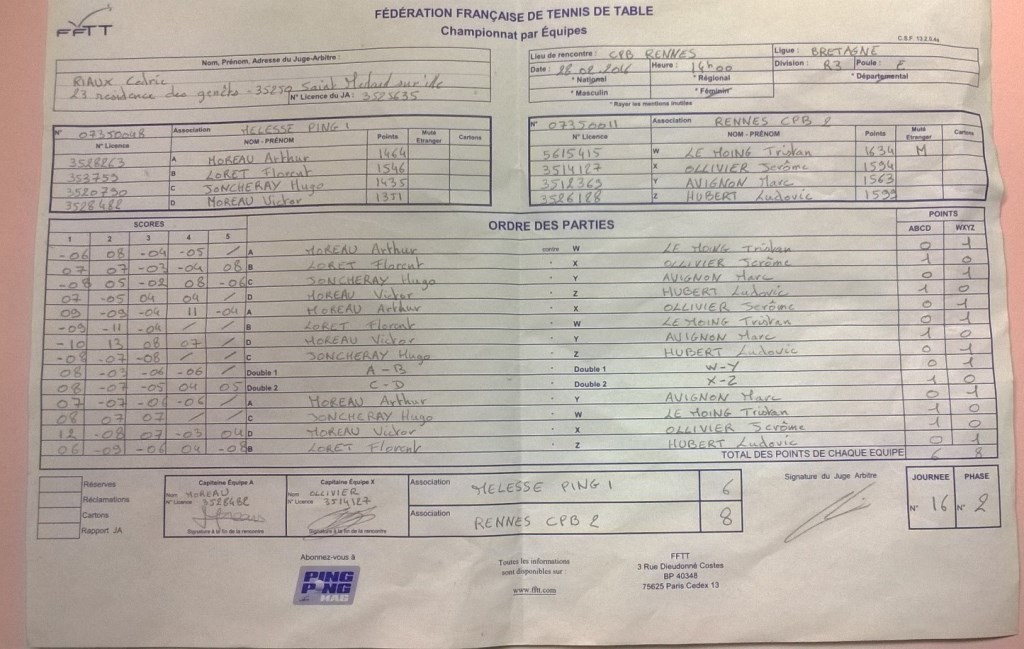 FFTT
FÉDÉRATION FRANÇAISE DE TENNIS DE TABLE
Championnat par Équipes
C.S.F. 13.2.0.4a
Nom, Prénom, Adresse du Juge-Arbitre :
RIAUX Cédric
23 résidence des genêts - 35250 Saint Medard sur ille
N° Licence du JA : 3523635
Lieu de rencontre : CPB RENNES
Ligue : BRETAGNE
Date : 28.02.2016 Heure : 14h00 Division : R3 Poule : E
* National * Régional * Départemental
* Masculin * Féminin
* Rayer les mentions inutiles
N° 07350048 Association MELESSE PING 1
N° Licence NOM - PRÉNOM Points Muté Etranger Cartons
3528263 A MOREAU Arthur 1464
353759 B LORET Florent 1546
3520790 C JONCHERAY Hugo 1435
3528482 D MOREAU Victor 1351
N° 07350011 Association RENNES CPB 2
N° Licence NOM - PRÉNOM Points Muté Etranger Cartons
5615415 W LE MOING Tristan 1634 M
3514127 X OLLIVIER Jerôme 1594
3512369 Y AVIGNON Marc 1563
3526128 Z HUBERT Ludovic 1599
SCORES ORDRE DES PARTIES POINTS
1 2 3 4 5 ABCD WXYZ
-06 08 -04 -05 / A MOREAU Arthur contre W LE MOING Tristan 0 1
07 07 -03 -04 08 B LORET Florent " X OLLIVIER Jerôme 1 0
-08 05 -02 08 -06 C JONCHERAY Hugo " Y AVIGNON Marc 0 1
07 -05 04 04 / D MOREAU Victor " Z HUBERT Ludovic 1 0
09 -09 -04 11 -04 A MOREAU Arthur " X OLLIVIER Jerôme 0 1
-09 -11 -04 / B LORET Florent " W LE MOING Tristan 0 1
-10 13 08 07 / D MOREAU Victor " Y AVIGNON Marc 1 0
-08 -07 -08 / / C JONCHERAY Hugo " Z HUBERT Ludovic 0 1
08 -03 -06 -06 / Double 1 A-B " Double 1 W-Y 0 1
08 -07 -05 04 05 Double 2 C-D " Double 2 X-Z 1 0
07 -07 -06 -06 / A MOREAU Arthur " Y AVIGNON Marc 0 1
08 07 07 / / C JONCHERAY Hugo " W LE MOING Tristan 1 0
12 -08 07 -03 04 D MOREAU Victor " X OLLIVIER Jerôme 1 0
06 -09 -06 04 -08 B LORET Florent " Z HUBERT Ludovic 0 1
TOTAL DES POINTS DE CHAQUE EQUIPE 6 8
Réserves
Réclamations
Cartons
Rapport JA
Capitaine Équipe A
Nom MOREAU
N° Licence 3528482
Signature à la fin de la rencontre
Capitaine Équipe X
Nom OLLIVIER
N° Licence 3514127
Signature à la fin de la rencontre
Association MELESSE PING 1 6
Association RENNES CPB 2 8
Signature du Juge Arbitre
JOURNEE PHASE
N° 16 N° 2
Abonnez-vous à
PING PONG MAG
Toutes les informations
sont disponibles sur
www.fftt.com
FFTT
3 Rue Dieudonné Costes
BP 40348
75625 Paris Cedex 13